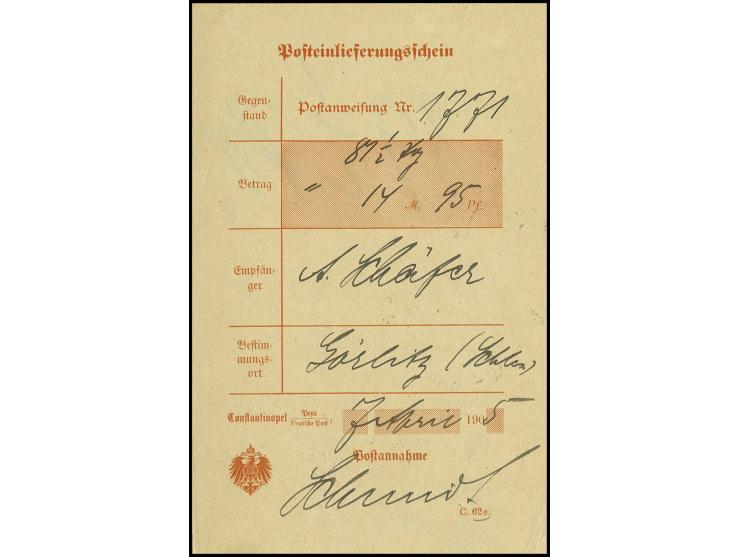 Posteinlieferungsschein
Gegen-
stand
Postanweisung Nr. 1771
81½
Betrag
" 14 M. 95 Pf.
Empfän-
ger
A. Schäfer
Bestim-
mungs-
ort
Görlitz (Schles)
Constantinopel Pera / Deutsche Post 7 April 1905
Postannahme
Schmidt
C. 62e.